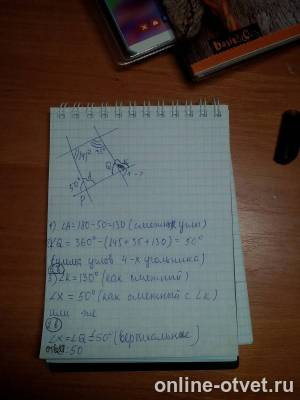 145°
35°
50°
A
Q
K
x-?
P
1) ∠A=180-50=130 (смежные углы)
∠Q = 360° - (145+35+130) = 50°
(сумма углов 4-х угольника)
3) ∠K=130° (как смежный)
∠X = 50° (как смежный с ∠K)
или же
∠X=∠Q=50° (вертикальные)
ответ: 50
online-otvet.ru